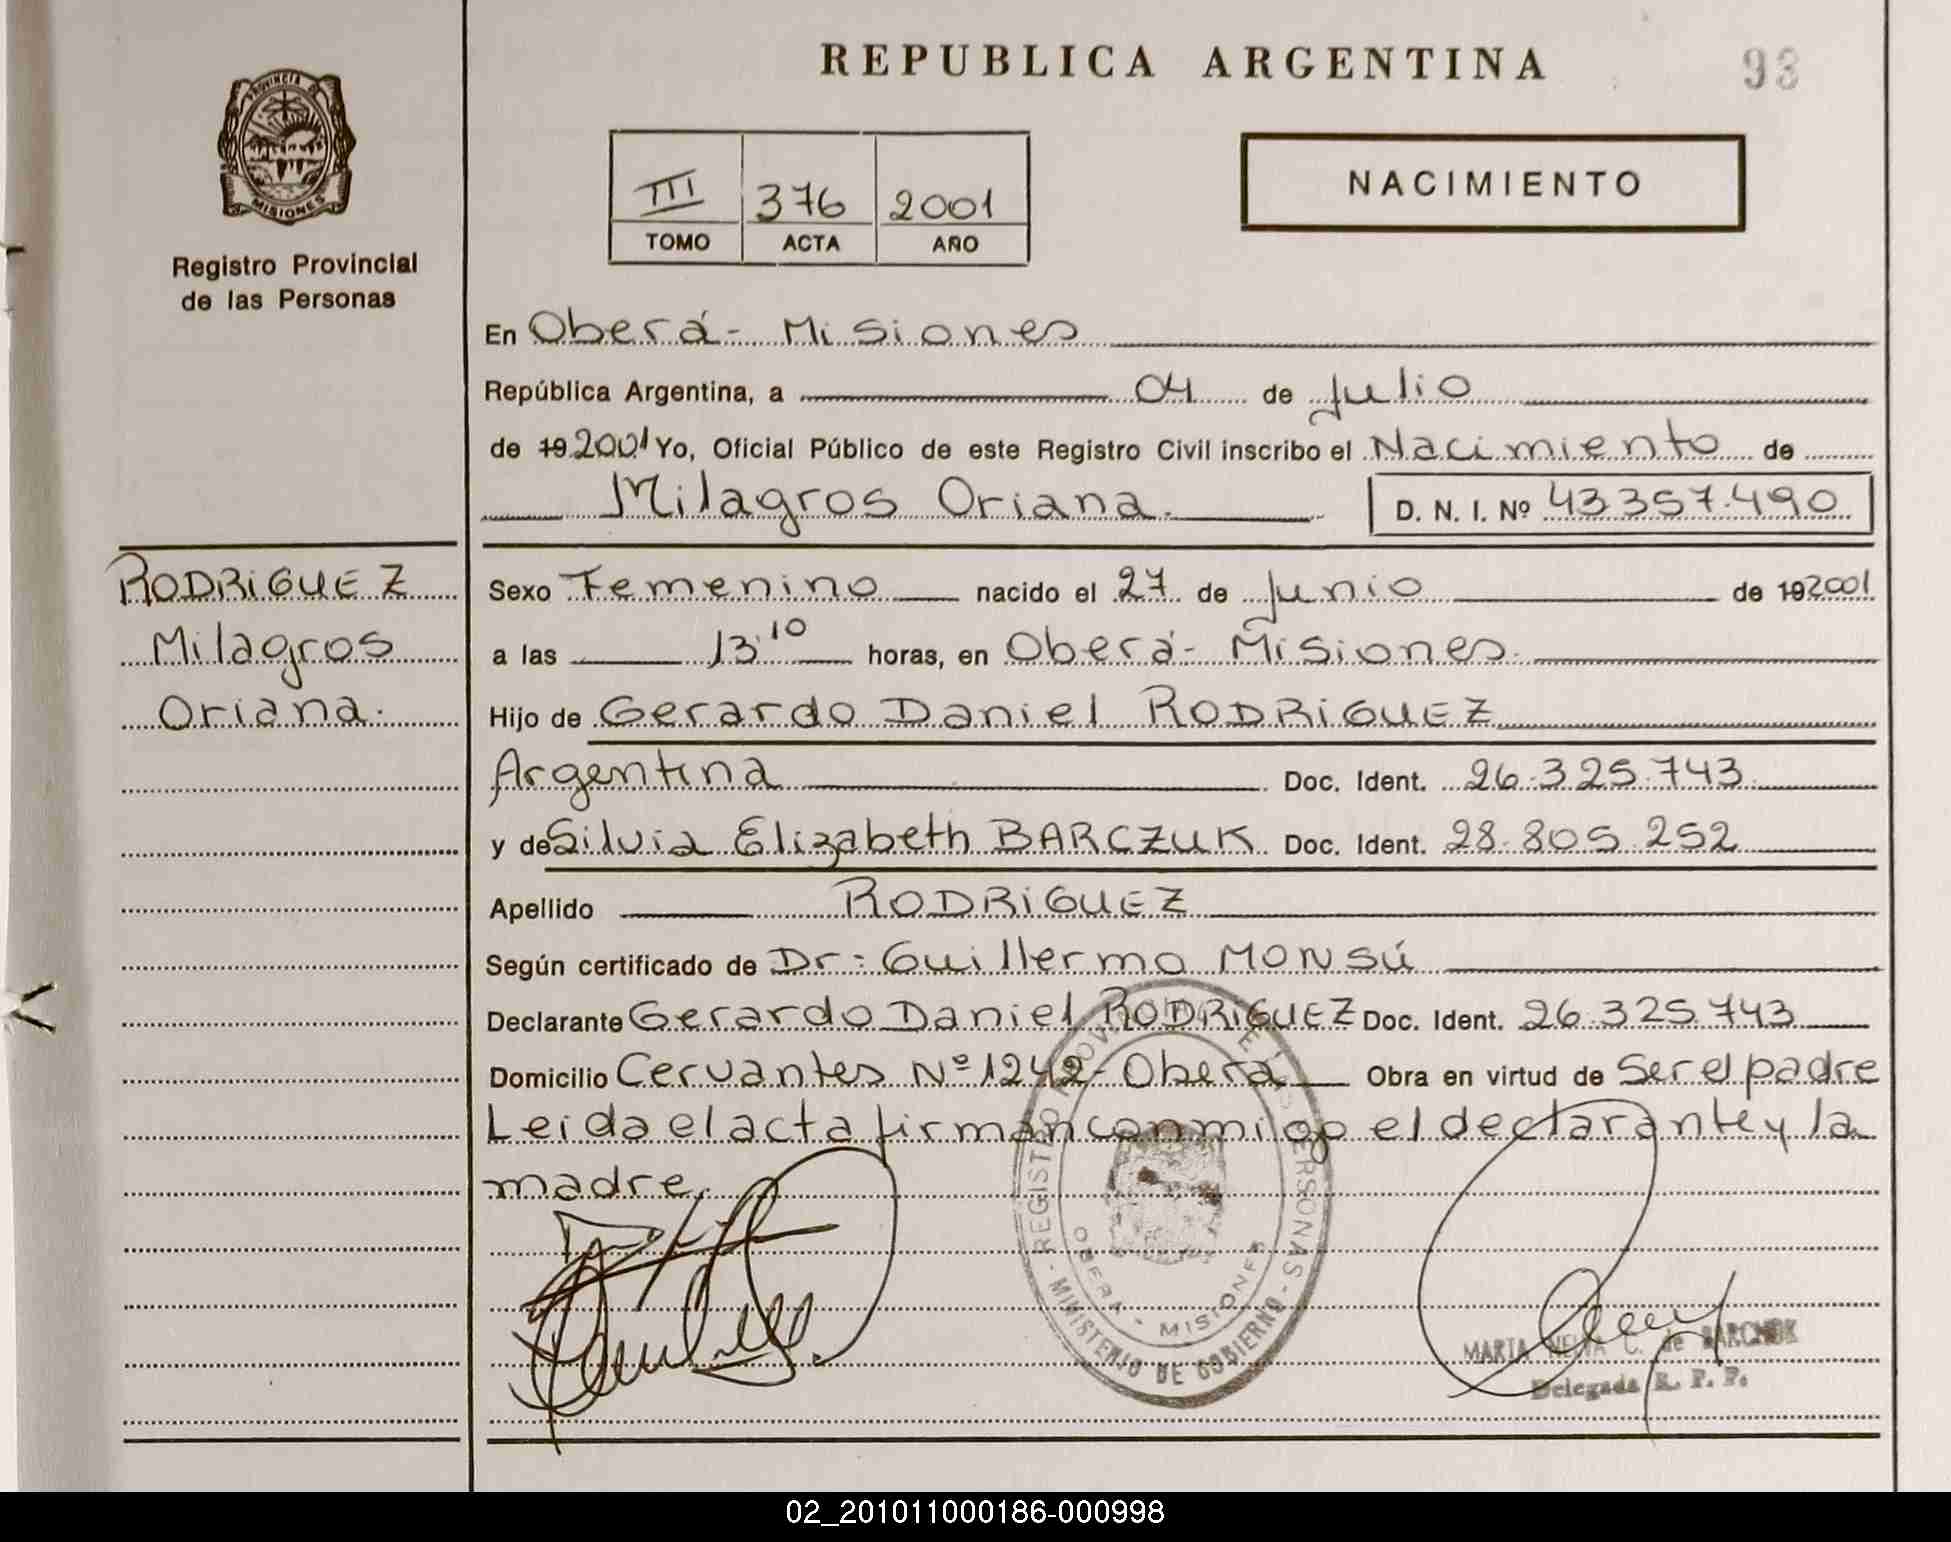 REPUBLICA ARGENTINA
93
PROVINCIA DE
MISIONES
Registro Provincial
de las Personas
III 376 2001
TOMO ACTA AÑO
NACIMIENTO
En Oberá - Misiones
República Argentina, a 04 de Julio
de 19 2001 Yo, Oficial Público de este Registro Civil inscribo el Nacimiento de
Milagros Oriana.
D. N. I. Nº 43.357.490
RODRIGUEZ
Milagros
Oriana.
Sexo Femenino nacido el 27 de Junio de 19 2001
a las 13:10 horas, en Oberá - Misiones.
Hijo de Gerardo Daniel RODRIGUEZ
Argentina Doc. Ident. 26.325.743
y de Silvia Elizabeth BARCZUK Doc. Ident. 28.805.252
Apellido RODRIGUEZ
Según certificado de Dr: Guillermo MONSÚ
Declarante Gerardo Daniel RODRIGUEZ Doc. Ident. 26.325.743
Domicilio Cervantes Nº 1242 - Oberá Obra en virtud de Ser el padre
Leida el acta firman conmigo el declarante y la
madre.
REGISTRO PROVINCIAL DE LAS PERSONAS - MINISTERIO DE GOBIERNO -
OBERA - MISIONES
MARIA NELVA C. de
Delegada R. P. P.
02_201011000186-000998